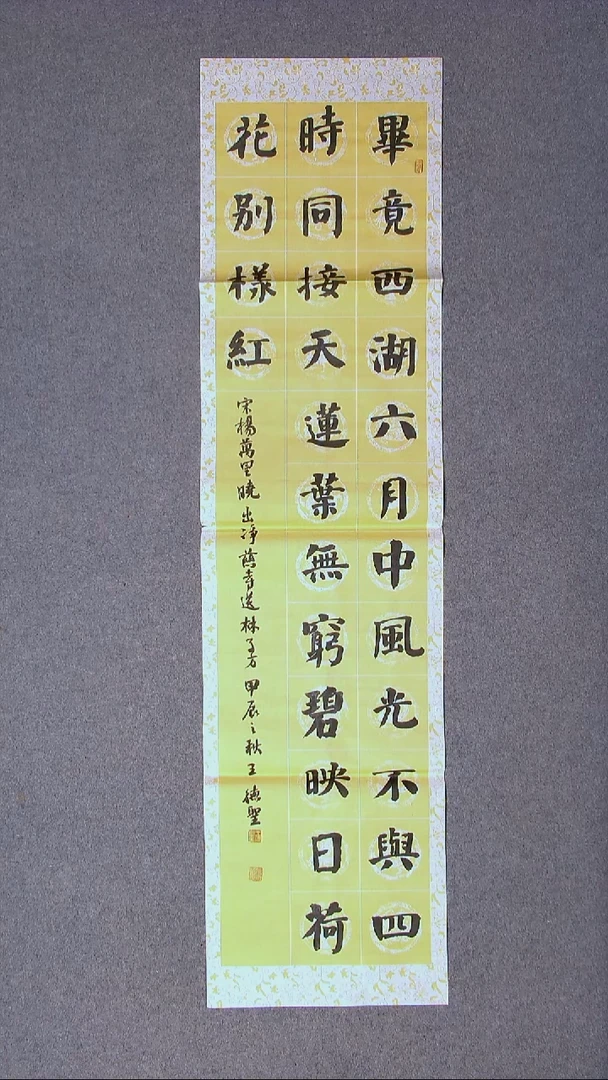 畢竟西湖六月中風光不與四
時同接天蓮葉無窮碧映日荷
花別樣紅
宋楊萬里曉出净慈寺送林子方甲辰之秋王德聖